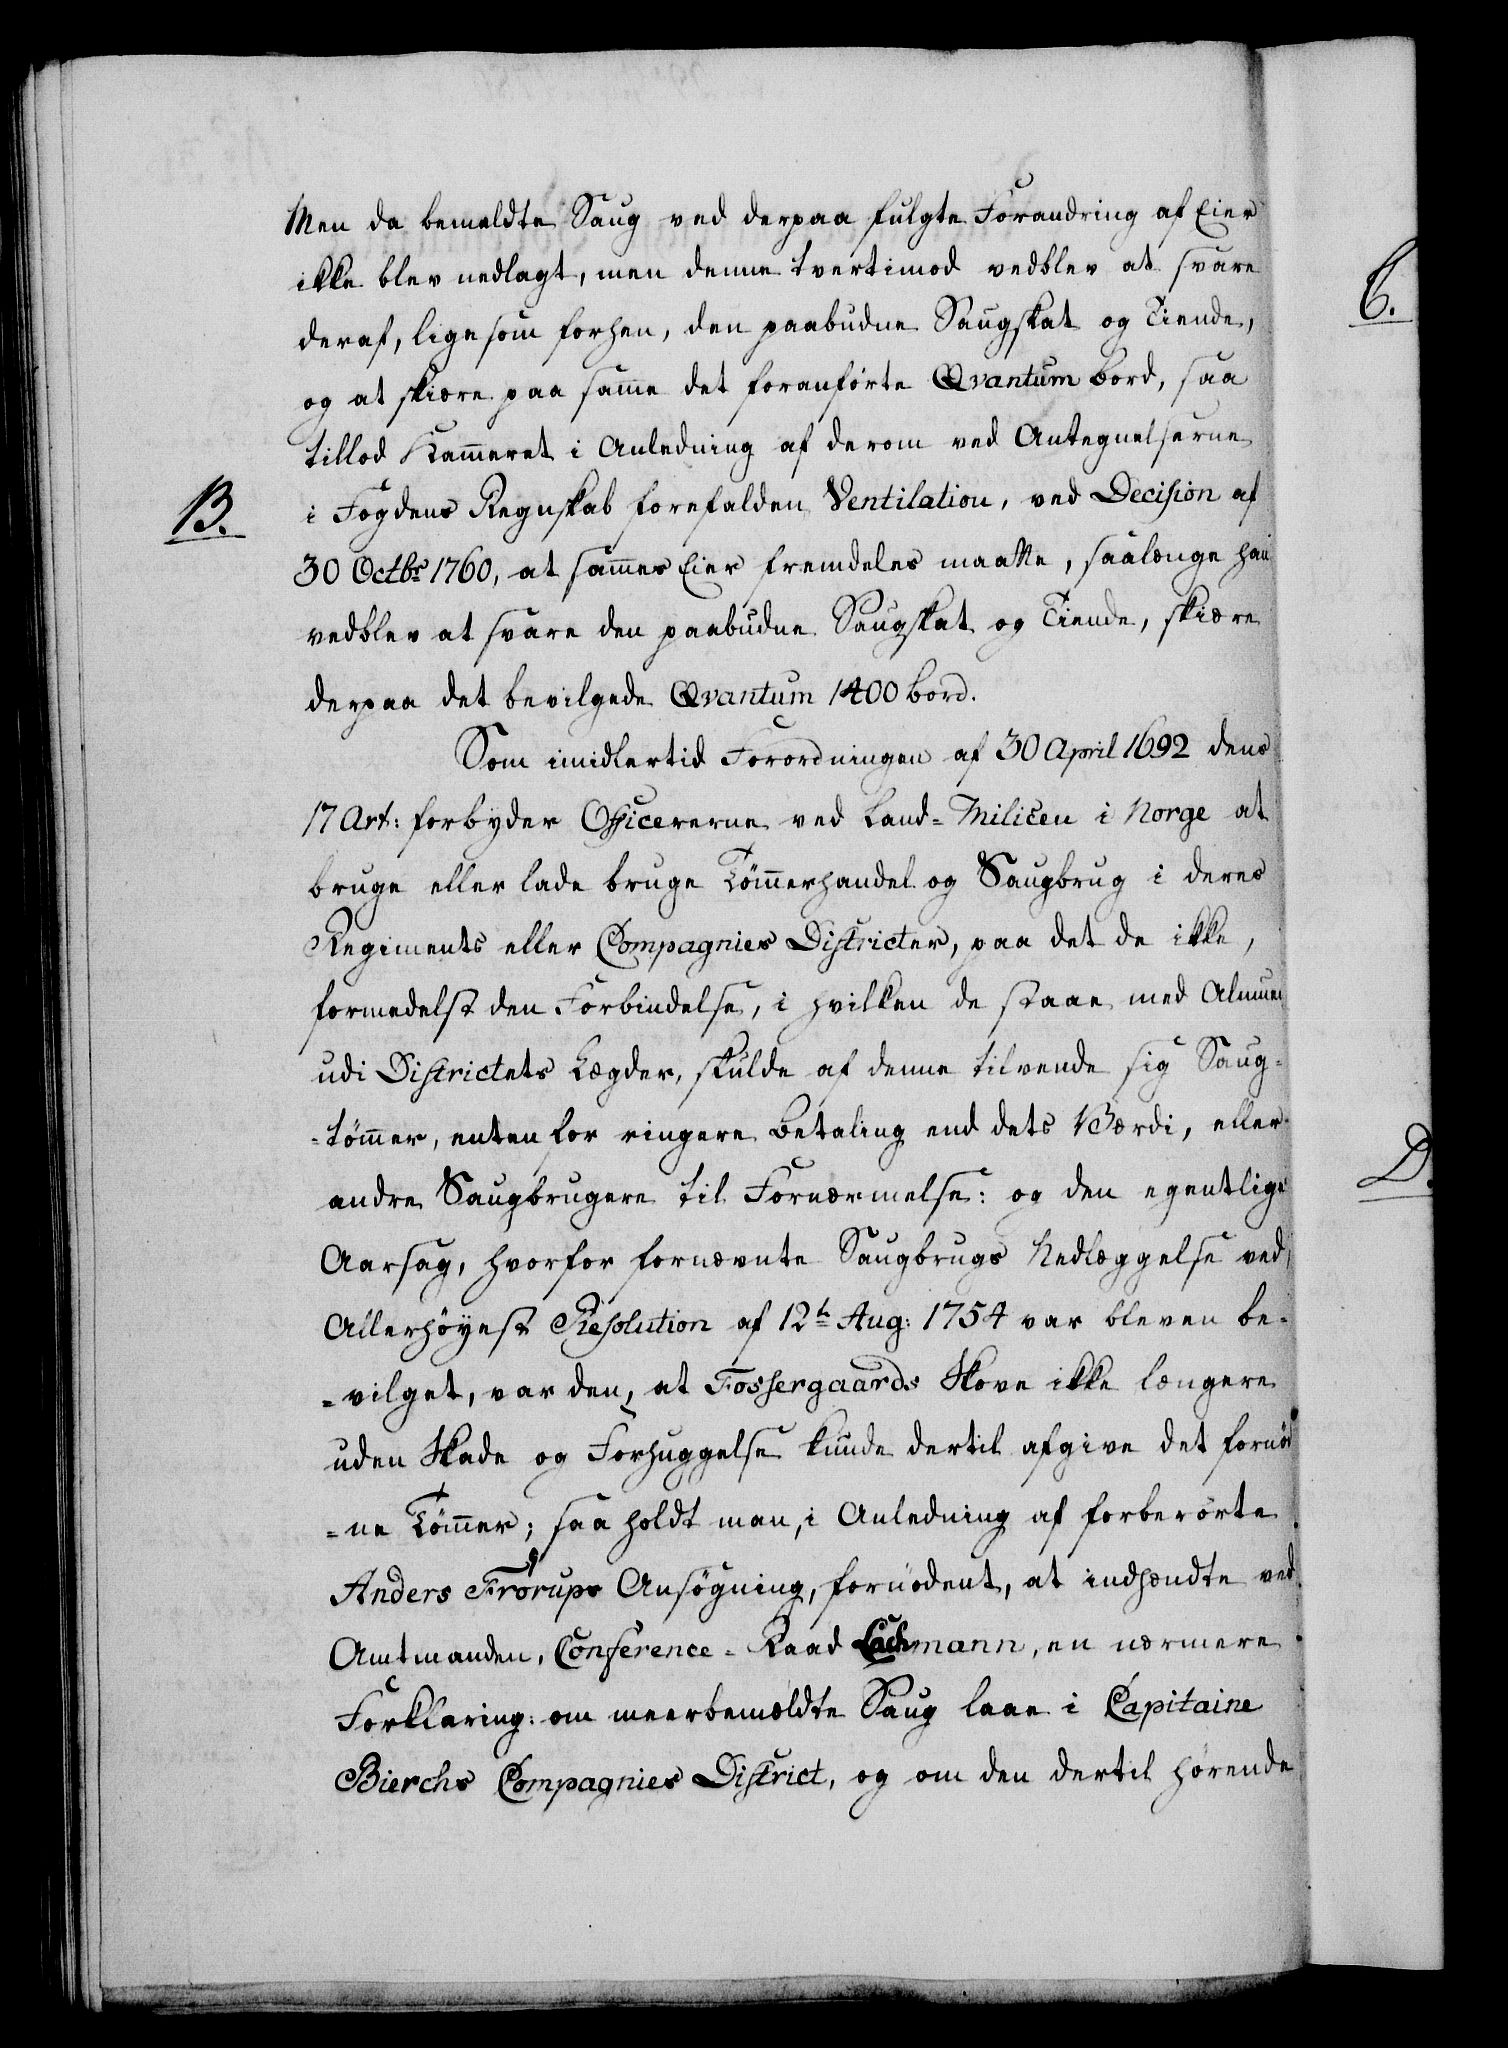 Men da bemeldte Saug ved derpaa fulgte Forandring af Eier
ikke blev nedlagt, men denne tvertimod vedblev at svare
deraf, ligesom forhen, den paabudne Saugskat og Tiende,
C.
og at skiære paa samme det foranførte Qvantum bord, saa
tillod Kammeret i Anledning af derom ved Antegnelserne
B.
i Fogdens Regnskab forefalden Ventilation, ved Decision af
30 Octbr 1760, at sammes Eier fremdeles maatte, saalænge han
vedblev at svare den paabudne Saugskat og Tiende, skiære
derpaa det bevilgede Qvantum 1400 bord.
Som imidlertid Forordningen af 30 April 1692 dens
17 Art: forbyder Officererne ved Land-Milicen i Norge at
bruge eller lade bruge Tømmerhandel og Saugbrug i deres
Regiments eller Compagnies Districter, paa det de ikke,
formedelst den Forbindelse, i hvilken de staae med Almuen
udi Districtets Lægder, skulde af denne tilvende sig Saug-
-tømmer, enten for ringere betaling end dets Værdi, eller
D.
andre Saugbrugere til Fornærmelse: og den egentlige
Aarsag, hvorfor fornævnte Saugbrugs Nedlæggelse ved
Allerhøyest Resolution af 12t Aug: 1754 var bleven be-
-vilget, var den, at Fossergaards Skove ikke længere
uden Skade og Forhuggelse kunde dertil afgive det fornød
-ne Tømmer; saa holdt man, i Anledning af forberørte
Anders Frørups Ansøgning, fornødent, at indhændte ved
Amtmanden, Conference-Raad Lachmann, en nærmere
Forklaring: om meerbemældte Saug laae i Capitaine
Bierchs Compagnies District, og om den dertil hørende